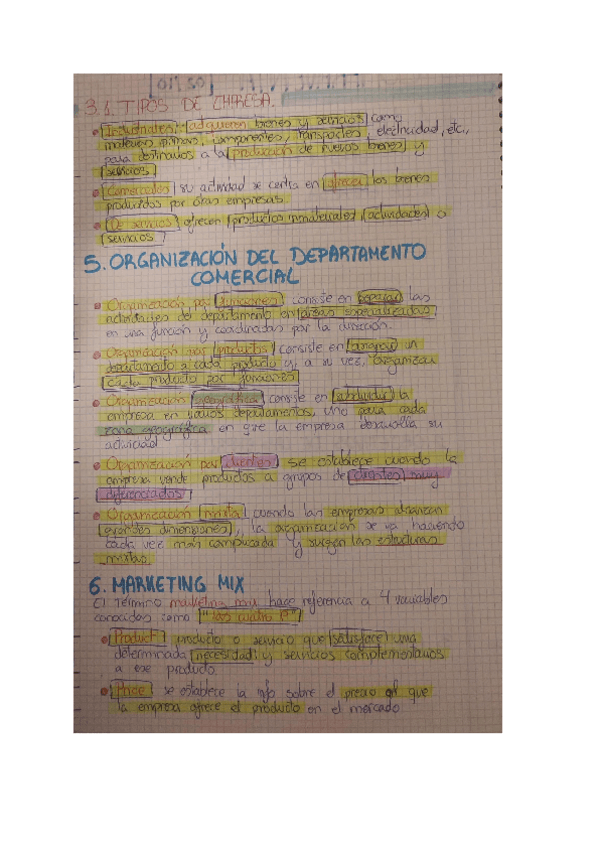 3.1 TIPOS DE EMPRESA.
• Industriales: adquieren bienes y servicios como
materias primas, componentes, transportes, electricidad, etc.,
para destinarlos a la producción de nuevos bienes y
servicios
• Comerciales: su actividad se centra en ofrecer los bienes
producidos por otras empresas.
• De servicios: ofrecen productos inmateriales (actividades) o
servicios
5. ORGANIZACIÓN DEL DEPARTAMENTO
COMERCIAL
• Organización por funciones: consiste en separar las
actividades del departamento en áreas especializadas
en una función y coordinadas por la dirección.
• Organización por productos: consiste en agrupar un
departamento a cada producto y, a su vez, organizar
cada producto por funciones
• Organización geográfica: consiste en subdividir la
empresa en varios departamentos, uno para cada
zona geográfica en que la empresa desarrolla su
actividad
• Organización por clientes: se establece cuando la
empresa vende productos a grupos de clientes muy
diferenciados
• Organización mixta: cuando las empresas alcanzan
grandes dimensiones, la organización se va haciendo
cada vez más complicada y surgen las estructuras
mixtas.
6. MARKETING MIX
El término marketing mix hace referencia a 4 variables
conocidas como "las cuatro P"
• Product: producto o servicio que satisface una
determinada necesidad y servicios complementarios
a ese producto.
• Price: se establece la info sobre el precio al que
la empresa ofrece el producto en el mercado